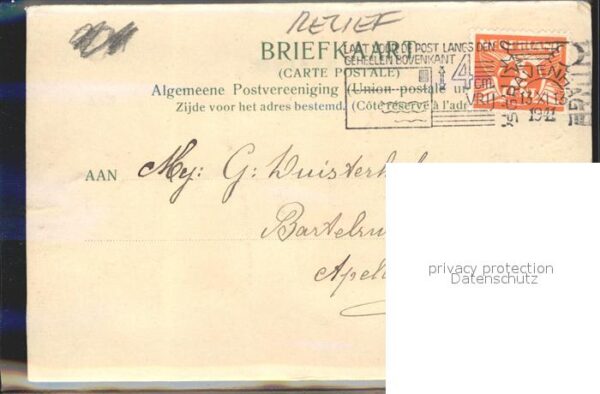 RELIEF
BRIEFKAART
(CARTE POSTALE)
Algemeene Postvereeniging (Union postale un
Zijde voor het adres bestemd. (Côté réservé à l'adr
LAAT VOOR DE POST LANGS DEN
GEHEELEN BOVENKANT
4 cm
VRIJ
NEDERLAND
AAN Mej: G: Duisterh
Bartelm
Apeld
privacy protection
Datenschutz